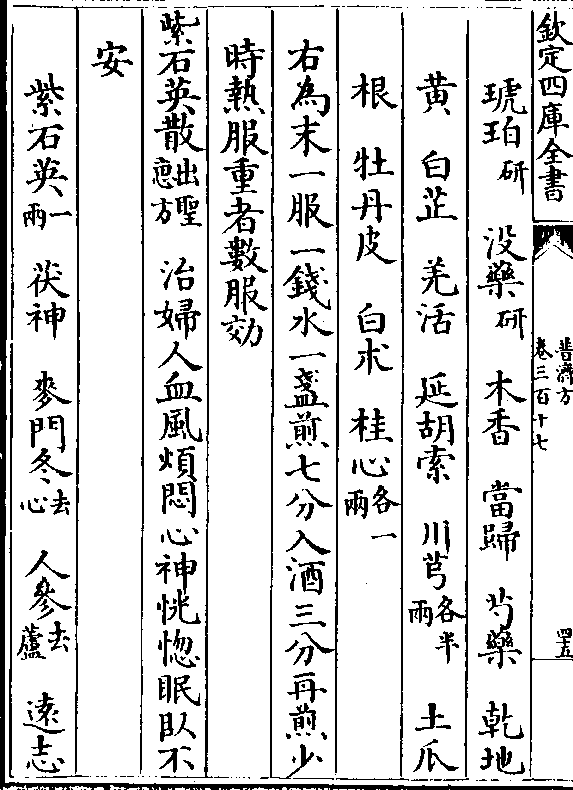 欽定四庫全書
普濟方
卷三百十七
四五
琥珀研 没藥研 木香 當歸 芍藥 乾地
黄 白芷 羌活 延胡索 川芎各半兩 土瓜
根 牡丹皮 白朮 桂心各一兩
右為末一服一錢水一盞煎七分入酒三分再煎少
時熱服重者數服効
紫石英散出聖惠方 治婦人血風煩悶心神恍惚眠卧不
安
紫石英一兩 茯神 麥門冬去心 人參去蘆 遠志